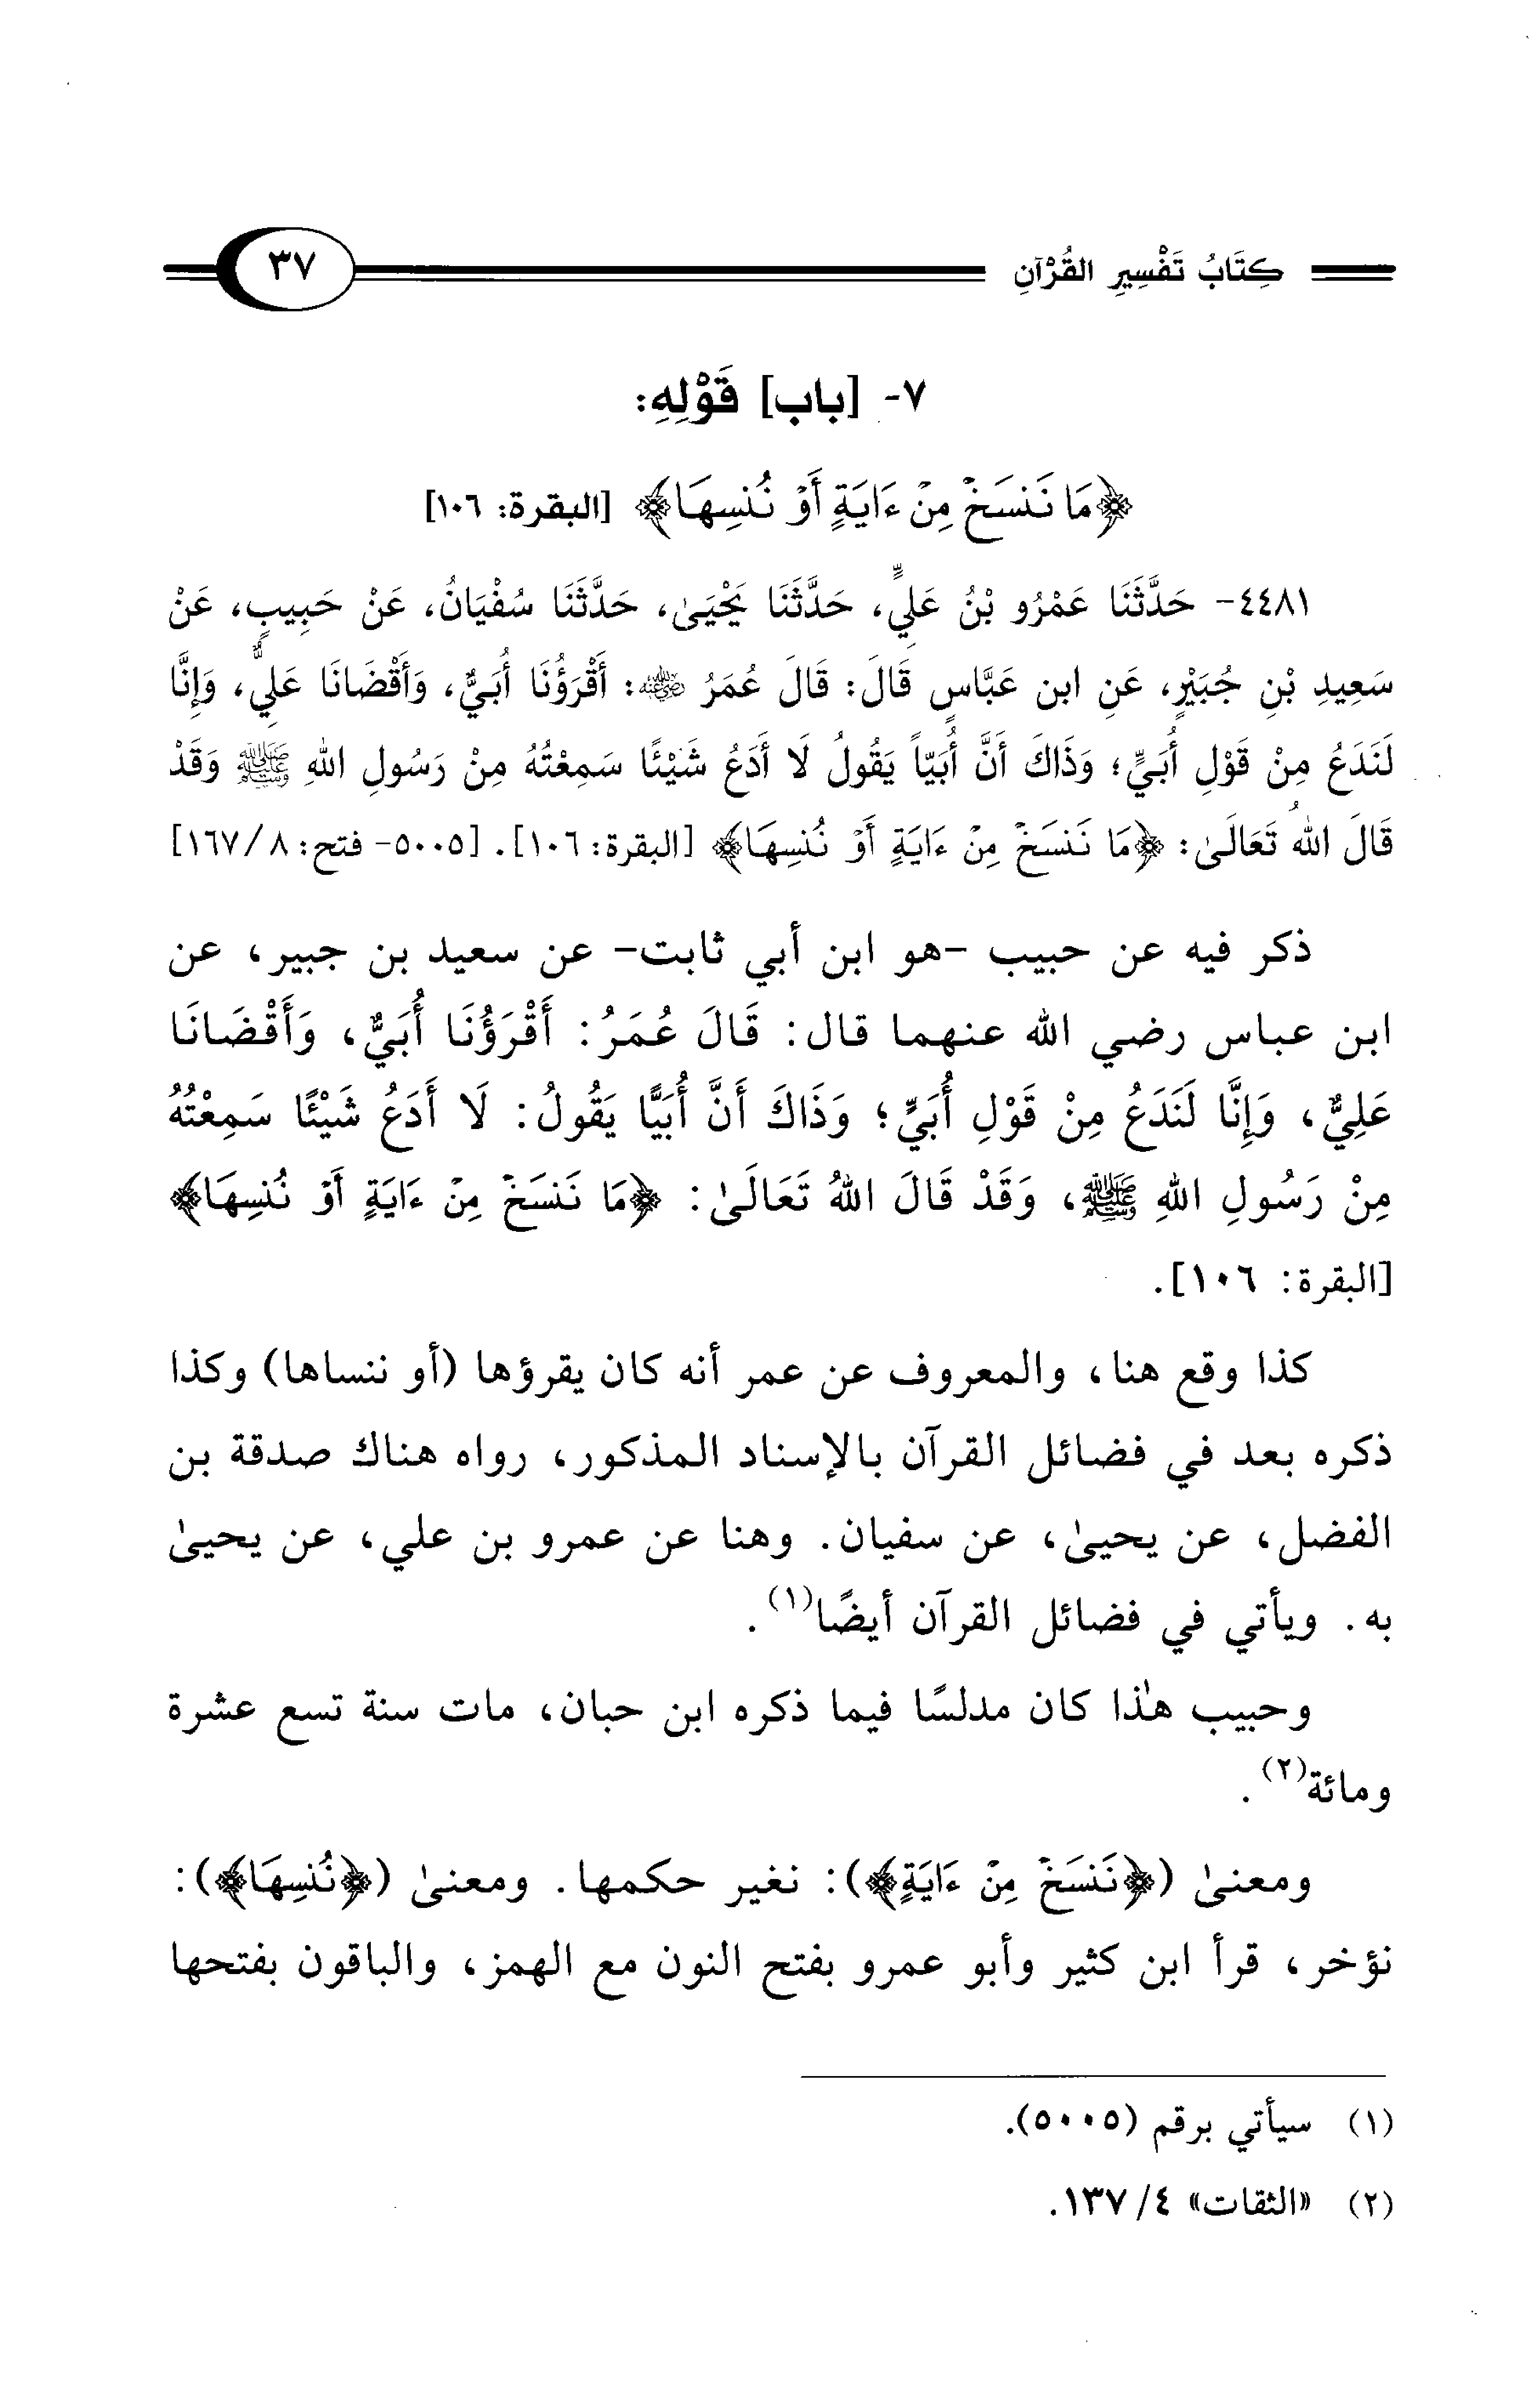 كِتَابُ تَفْسِيرِ القُرْآنِ ٣٧
٧- [باب] قَوْلِهِ:
﴿مَا نَنسَخْ مِنْ ءَايَةٍ أَوْ نُنسِهَا﴾ [البقرة: ١٠٦]
٤٤٨١- حَدَّثَنَا عَمْرُو بْنُ عَلِيٍّ، حَدَّثَنَا يَحْيَىٰ، حَدَّثَنَا سُفْيَانُ، عَنْ حَبِيبٍ، عَنْ
سَعِيدِ بْنِ جُبَيْرٍ، عَنِ ابن عَبَّاسٍ قَالَ: قَالَ عُمَرُ رضي الله عنه: أَقْرَؤُنَا أُبَيٌّ، وَأَقْضَانَا عَلِيٌّ، وَإِنَّا
لَنَدَعُ مِنْ قَوْلِ أُبَيٍّ؛ وَذَاكَ أَنَّ أُبَيّاً يَقُولُ لَا أَدَعُ شَيْئًا سَمِعْتُهُ مِنْ رَسُولِ اللهِ ﷺ وَقَدْ
قَالَ اللهُ تَعَالَىٰ: ﴿مَا نَنسَخْ مِنْ ءَايَةٍ أَوْ نُنسِهَا﴾ [البقرة: ١٠٦]. [٥٠٠٥- فتح: ٨/١٦٧]
ذكر فيه عن حبيب -هو ابن أبي ثابت- عن سعيد بن جبير، عن
ابن عباس رضي الله عنهما قال: قَالَ عُمَرُ: أَقْرَؤُنَا أُبَيٌّ، وَأَقْضَانَا
عَلِيٌّ، وَإِنَّا لَنَدَعُ مِنْ قَوْلِ أُبَيٍّ؛ وَذَاكَ أَنَّ أُبَيًّا يَقُولُ: لَا أَدَعُ شَيْئًا سَمِعْتُهُ
مِنْ رَسُولِ اللهِ ﷺ، وَقَدْ قَالَ اللهُ تَعَالَىٰ: ﴿مَا نَنسَخْ مِنْ ءَايَةٍ أَوْ نُنسِهَا﴾
[البقرة: ١٠٦].
كذا وقع هنا، والمعروف عن عمر أنه كان يقرؤها (أو ننساها) وكذا
ذكره بعد في فضائل القرآن بالإسناد المذكور، رواه هناك صدقة بن
الفضل، عن يحيىٰ، عن سفيان. وهنا عن عمرو بن علي، عن يحيىٰ
به. ويأتي في فضائل القرآن أيضًا(١).
وحبيب هذا كان مدلسًا فيما ذكره ابن حبان، مات سنة تسع عشرة
ومائة(٢).
ومعنىٰ (﴿نَنسَخْ مِنْ ءَايَةٍ﴾): نغير حكمها. ومعنىٰ (﴿نُنسِهَا﴾):
نؤخر، قرأ ابن كثير وأبو عمرو بفتح النون مع الهمز، والباقون بفتحها
(١) سيأتي برقم (٥٠٠٥).
(٢) «الثقات» ٤/ ١٣٧.